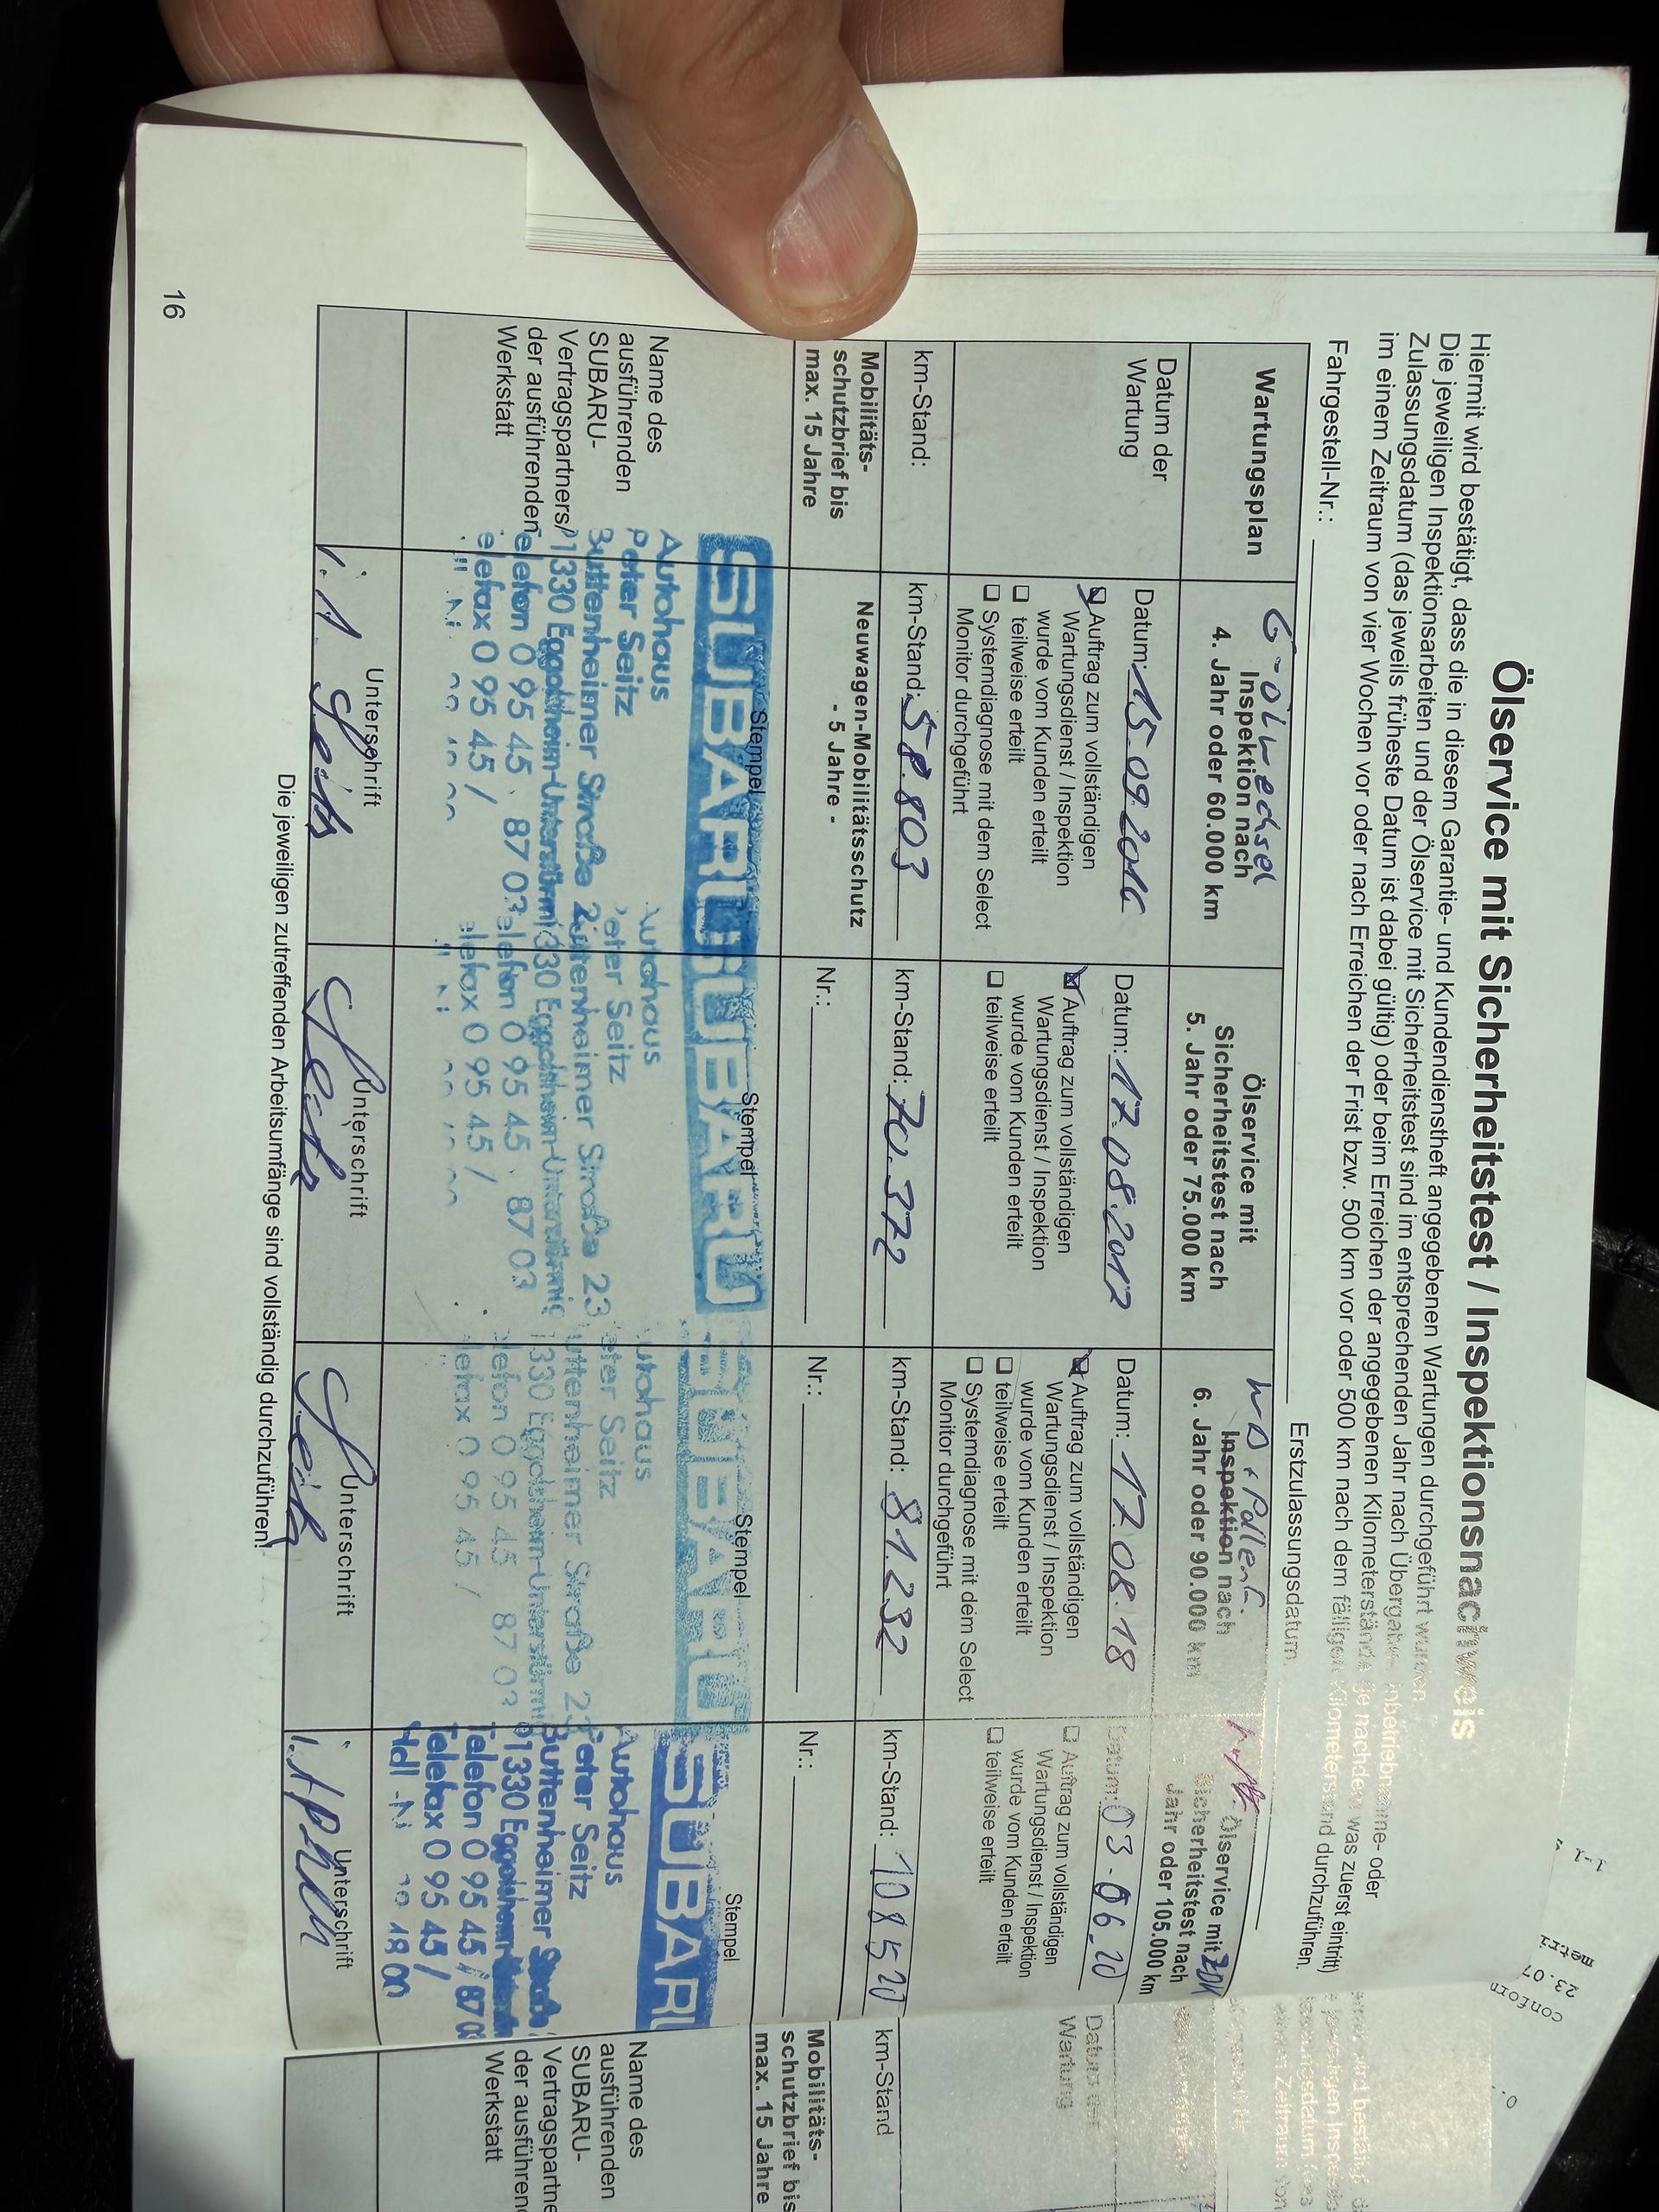 Ölservice mit Sicherheitstest / Inspektionsnachweis
Hiermit wird bestätigt, dass die in diesem Garantie- und Kundendienstheft angegebenen Wartungen durchgeführt wurden.
Die jeweiligen Inspektionsarbeiten und der Ölservice mit Sicherheitstest sind im entsprechenden Jahr nach Übergabe-, Inbetriebnahme- oder
Zulassungsdatum (das jeweils früheste Datum ist dabei gültig) oder beim Erreichen der angegebenen Kilometerstände, je nachdem was zuerst eintritt)
im einem Zeitraum von vier Wochen vor oder nach Erreichen der Frist bzw. 500 km vor oder 500 km nach dem fälligen Kilometerstand durchzuführen.
Fahrgestell-Nr.:
Erstzulassungsdatum
Wartungsplan
Inspektion nach
4. Jahr oder 60.000 km
Ölservice mit
Sicherheitstest nach
5. Jahr oder 75.000 km
Inspektion nach
6. Jahr oder 90.000 km
Ölservice mit
Sicherheitstest nach
Jahr oder 105.000 km
Datum der
Wartung
Datum: 15.09.2016
Auftrag zum vollständigen
Wartungsdienst / Inspektion
wurde vom Kunden erteilt
teilweise erteilt
Systemdiagnose mit dem Select
Monitor durchgeführt
Datum: 17.08.2017
Auftrag zum vollständigen
Wartungsdienst / Inspektion
wurde vom Kunden erteilt
teilweise erteilt
Datum: 17.08.18
Auftrag zum vollständigen
Wartungsdienst / Inspektion
wurde vom Kunden erteilt
teilweise erteilt
Systemdiagnose mit dem Select
Monitor durchgeführt
Datum: 03.06.20
Auftrag zum vollständigen
Wartungsdienst / Inspektion
wurde vom Kunden erteilt
teilweise erteilt
km-Stand:
km-Stand: 58.803
km-Stand: 70.372
km-Stand: 81.232
km-Stand: 108520
Mobilitäts-
schutzbrief bis
max. 15 Jahre
Neuwagen-Mobilitätsschutz
- 5 Jahre -
Nr.:
Nr.:
Nr.:
Name des
ausführenden
SUBARU-
Vertragspartners/
der ausführenden
Werkstatt
Stempel
SUBARU
Autohaus
Peter Seitz
Buttenheimer Straße 23
Telefon 0 95 45 / 87 03
Telefax 0 95 45 /
Stempel
SUBARU
Autohaus
Peter Seitz
Buttenheimer Straße 23
Telefon 0 95 45 / 87 03
Telefax 0 95 45 /
Stempel
SUBARU
Autohaus
Peter Seitz
Buttenheimer Straße 23
Telefon 0 95 45 87 03
Telefax 0 95 45 /
Stempel
SUBARU
Autohaus
Peter Seitz
Buttenheimer
Telefon 0 95 45 / 87 03
Telefax 0 95 45 /
Unterschrift
i.A. Seitz
Unterschrift
Seitz
Unterschrift
Seitz
Unterschrift
Die jeweiligen zutreffenden Arbeitsumfänge sind vollständig durchzuführen!
16
Datum der
Wartung
km-Stand
Mobilitäts-
schutzbrief bis
max. 15 Jahre
Name des
ausführenden
SUBARU-
Vertragspartne
der ausführen
Werkstatt
conform
23.07
metri